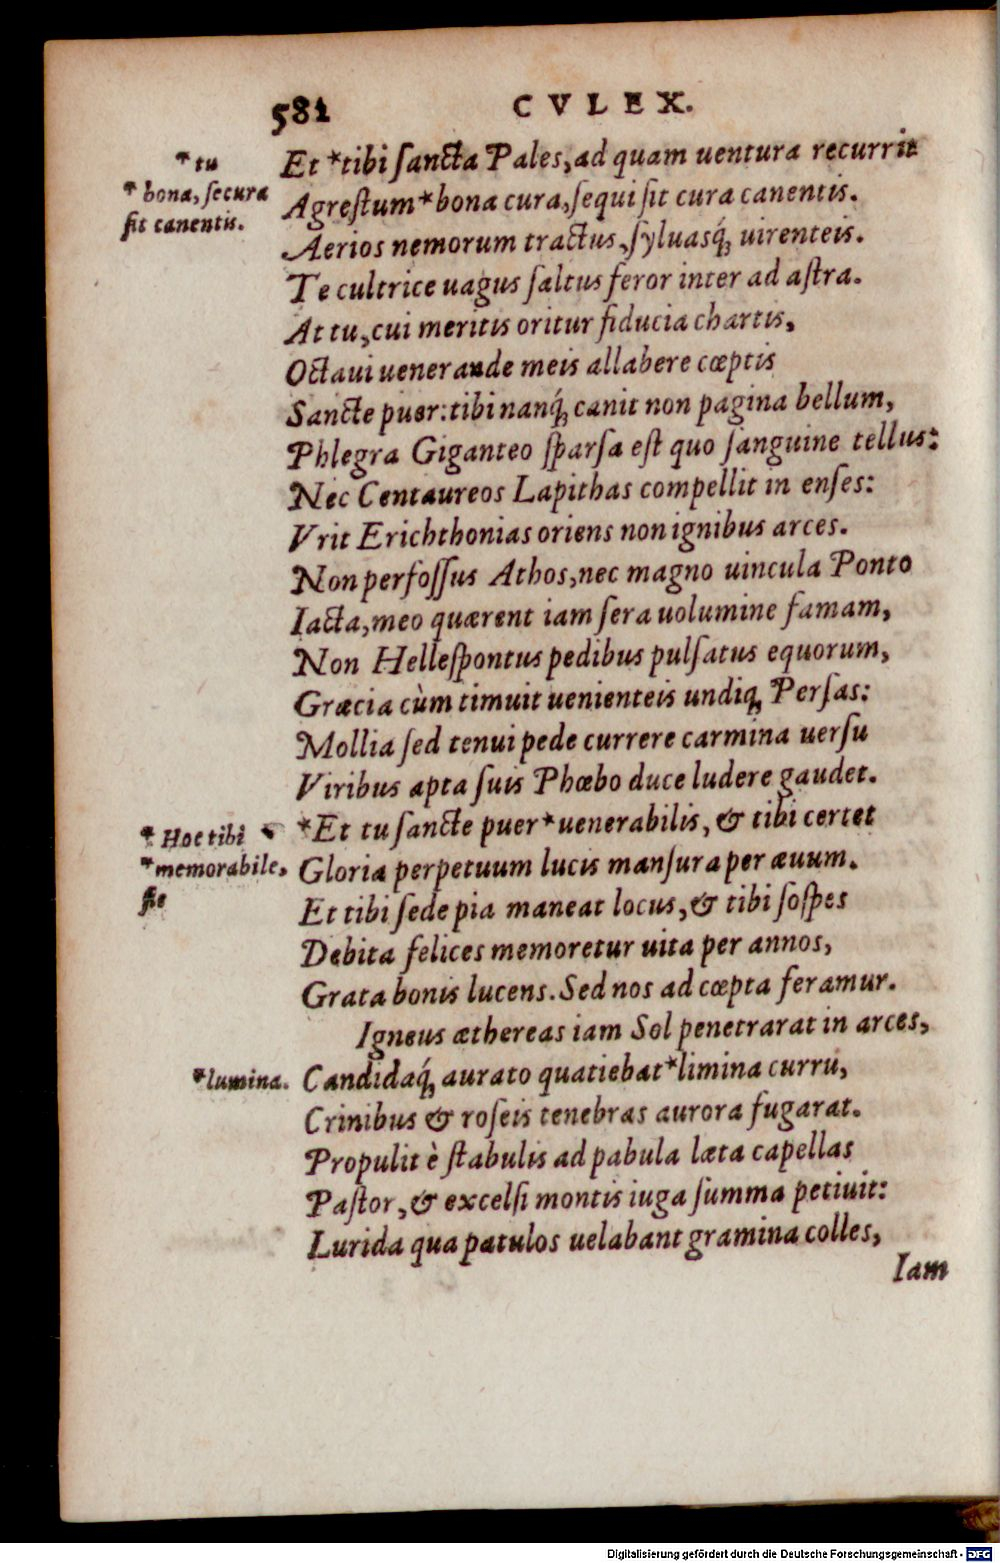 582 CVLEX.
Et *tibi sancta Pales, ad quam uentura recurrit
*tu
Agrestum *bona cura, sequi sit cura canentis.
*bona, secura
sit canentis.
Aerios nemorum tractus, syluasq́; uirenteis.
Te cultrice uagus saltus feror inter ad astra.
At tu, cui meritis oritur fiducia chartis,
Octaui uenerande meis allabere cœptis
Sancte puer: tibi nanq́; canit non pagina bellum,
Phlegra Giganteo sparsa est quo sanguine tellus:
Nec Centaureos Lapithas compellit in enses:
Vrit Erichthonias oriens non ignibus arces.
Non perfossus Athos, nec magno uincula Ponto
Iacta, meo quærent iam sera uolumine famam,
Non Hellespontus pedibus pulsatus equorum,
Græcia cùm timuit uenienteis undiq; Persas:
Mollia sed tenui pede currere carmina uersu
Viribus apta suis Phœbo duce ludere gaudet.
*Et tu sancte puer *uenerabilis, & tibi certet
*Hoc tibi
Gloria perpetuum lucis mansura per æuum.
*memorabile,
sie
Et tibi sede pia maneat locus, & tibi sospes
Debita felices memoretur uita per annos,
Grata bonis lucens. Sed nos ad cœpta feramur.
Igneus æthereas iam Sol penetrarat in arces,
Candidaq́; aurato quatiebat *limina curru,
*lumina.
Crinibus & roseis tenebras aurora fugarat.
Propulit è stabulis ad pabula læta capellas
Pastor, & excelsi montis iuga summa petiuit:
Lurida qua patulos uelabant gramina colles,
Iam
Digitalisierung gefördert durch die Deutsche Forschungsgemeinschaft - DFG